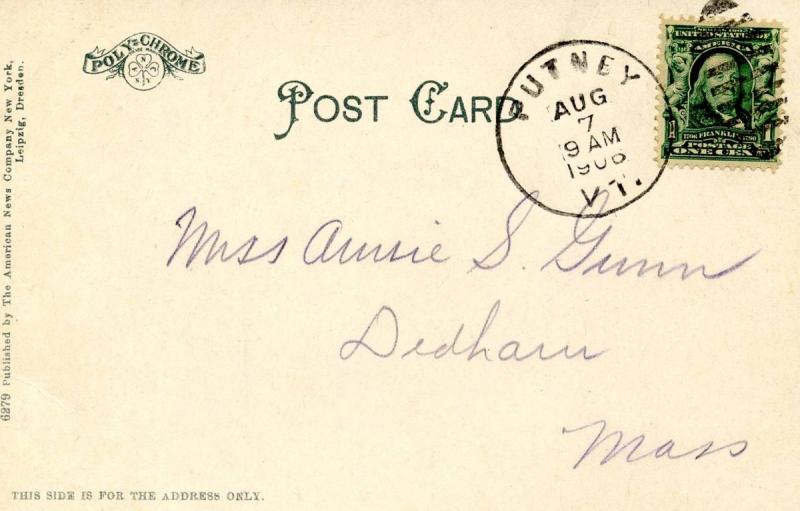 POLY-CHROME
POST CARD
PUTNEY
AUG
7
9 AM
1906
VT.
SERIES 1902
UNITED STATES OF
AMERICA
1706 FRANKLIN 1790
1 POSTAGE 1
ONE CENT
Miss Annie S. Gunn
Dedham
Mass
6279 Published by The American News Company New York,
Leipzig, Dresden.
THIS SIDE IS FOR THE ADDRESS ONLY.